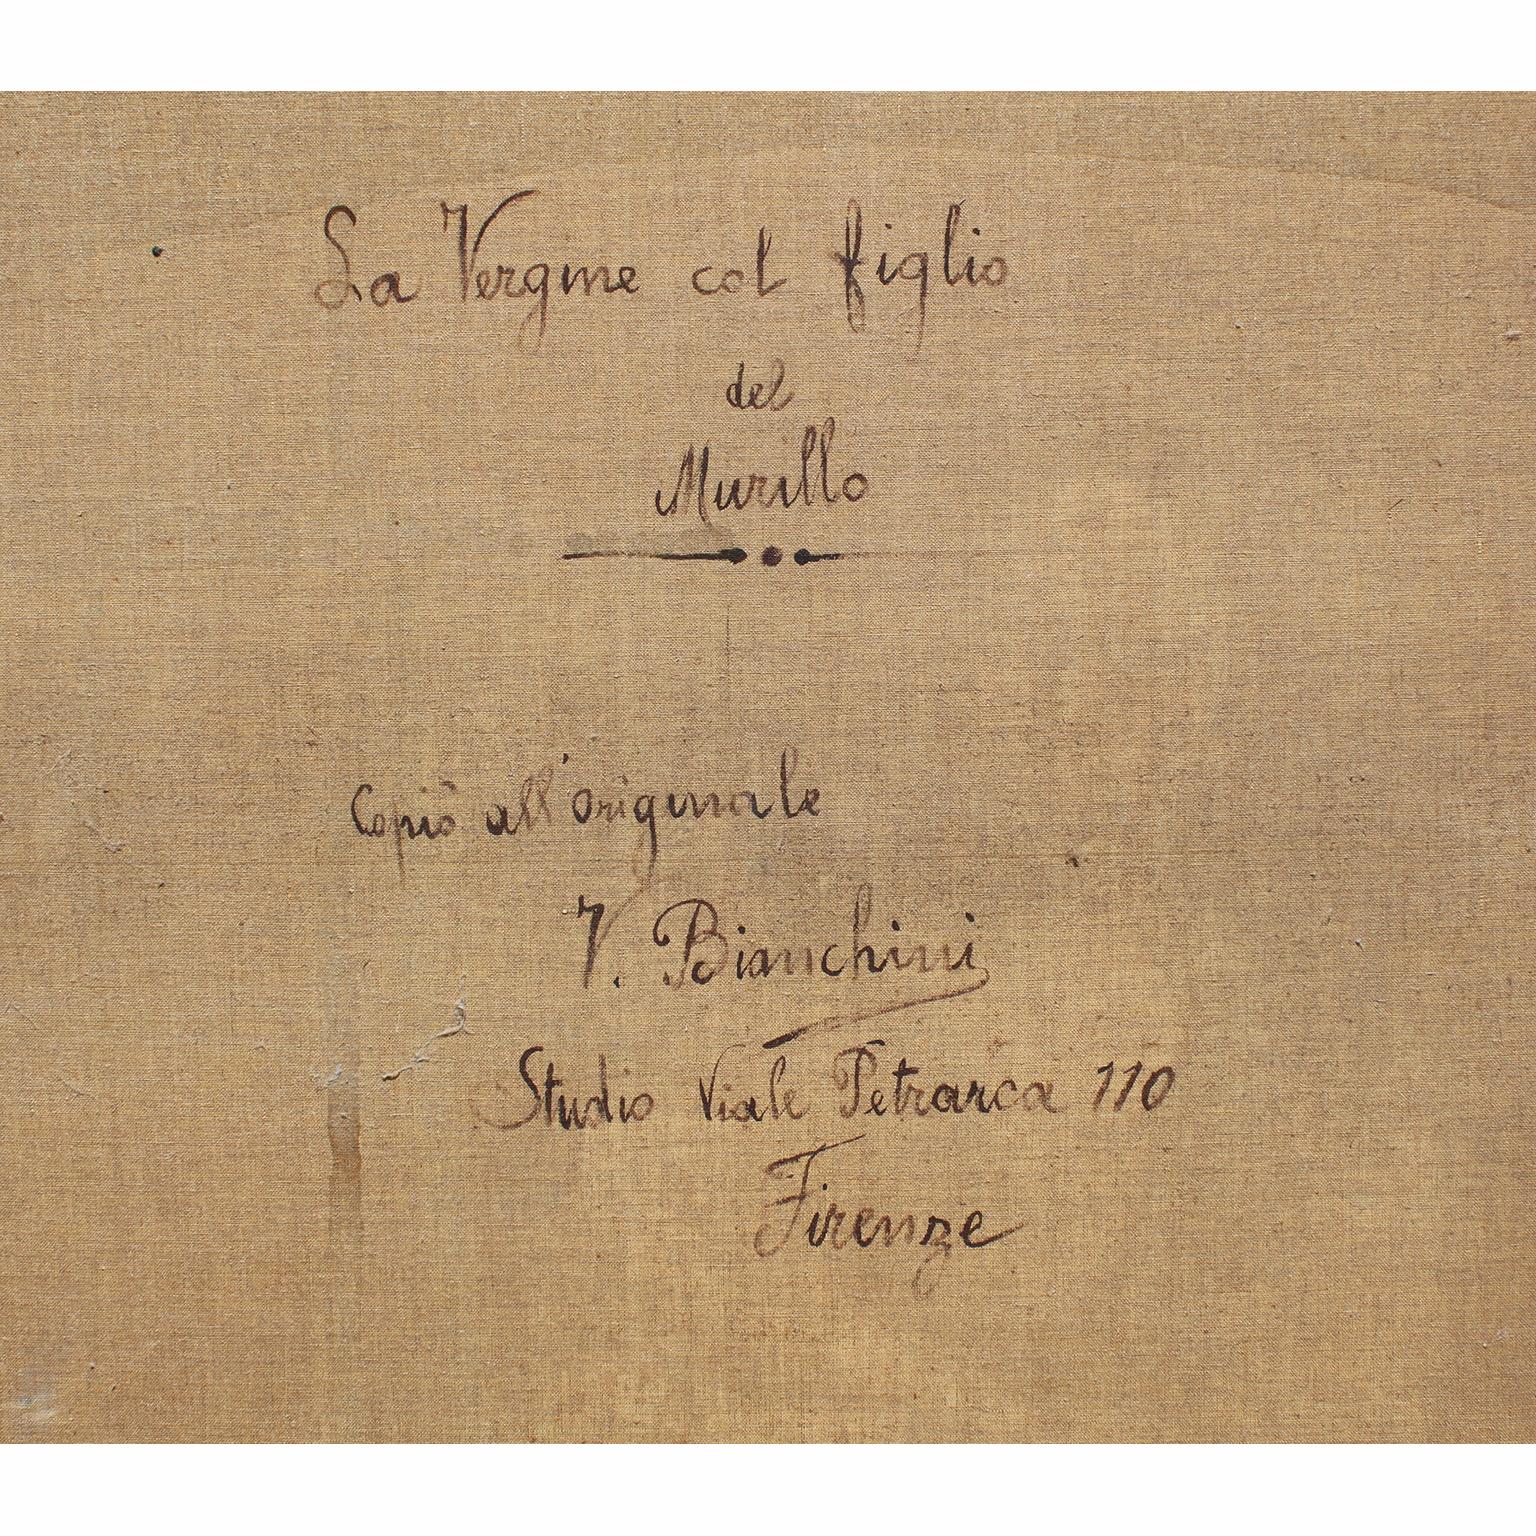 La Vergine col figlio
del
Murillo
Copiò all'originale
V. Bianchini
Studio Viale Petrarca 110
Firenze